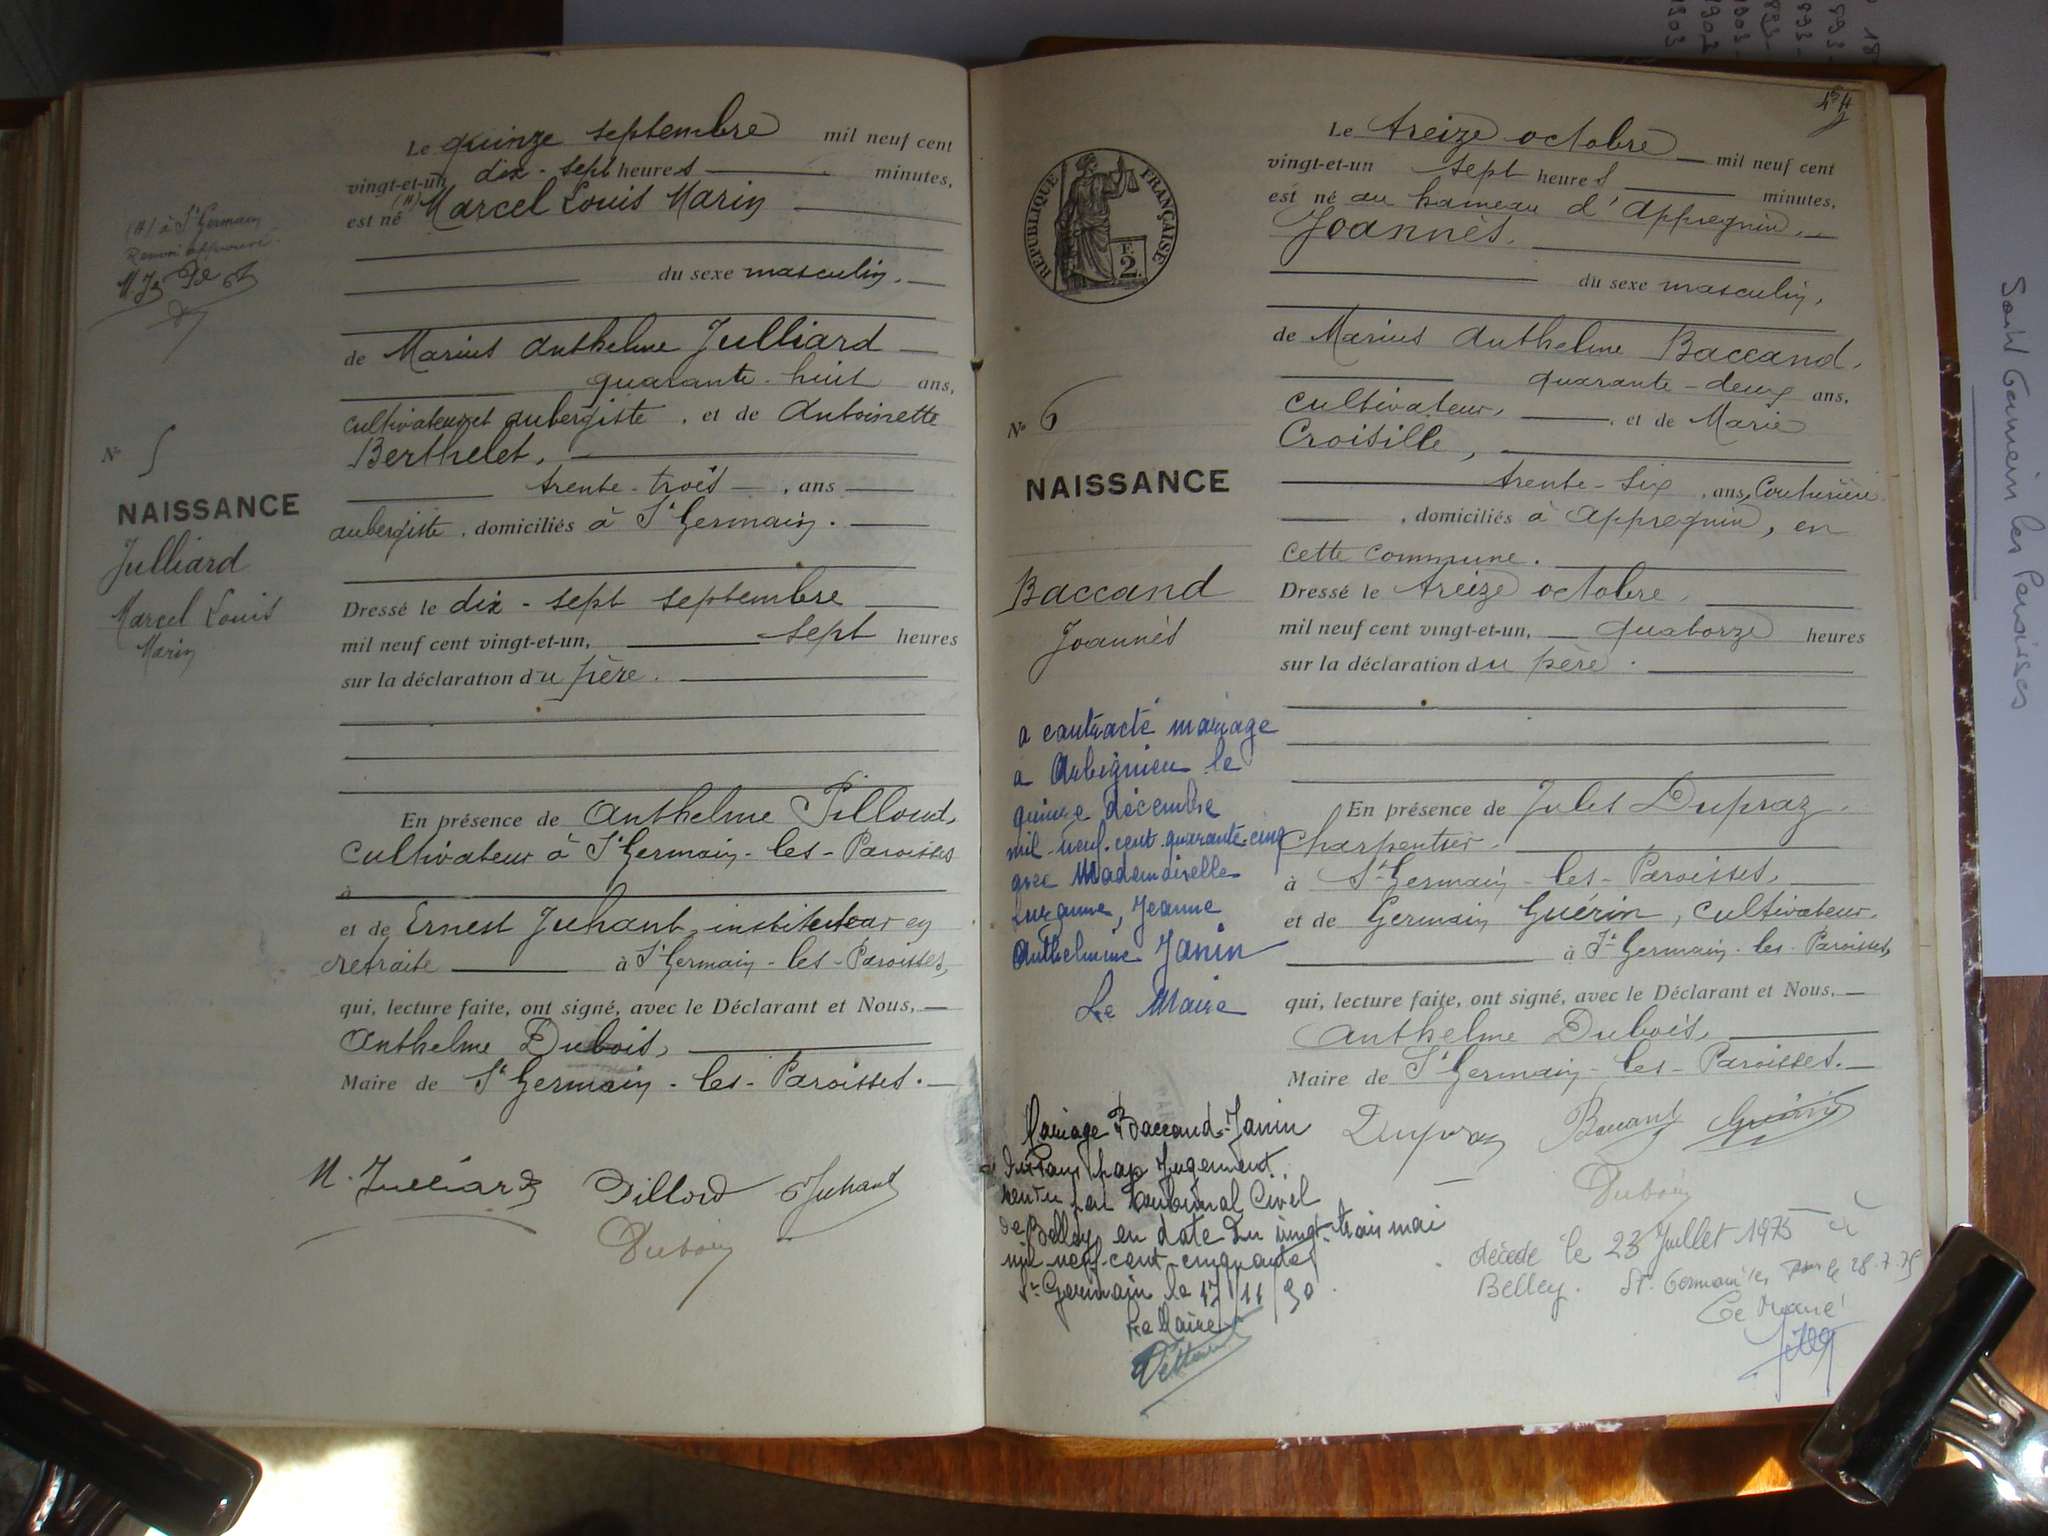 Le quinze septembre mil neuf cent
vingt-et-un dix-sept heures minutes,
est né (#) Marcel Louis Marin
du sexe masculin.
de Marius Anthelme Julliard
quarante-huit ans,
cultivateur et aubergiste, et de Antoinette
Berthelet,
trente-trois, ans
aubergiste, domiciliés à St Germain.
Dressé le dix-sept septembre
mil neuf cent vingt-et-un, sept heures
sur la déclaration du père.
En présence de Anthelme Pilloud,
cultivateur à St Germain-les-Paroisses
à
et de Ernest Juhant, instituteur en
retraite à St Germain-les-Paroisses,
qui, lecture faite, ont signé, avec le Déclarant et Nous,
Anthelme Dubois,
Maire de St Germain-les-Paroisses.
M. Julliard Pilloud Juhant
Dubois
(#) à St Germain
Renvoi approuvé
No 5
NAISSANCE
Julliard
Marcel Louis
Marin
Le treize octobre mil neuf cent
vingt-et-un sept heures minutes,
est né au hameau d'Appregnin,
Joannès.
du sexe masculin,
de Marius Anthelme Baccand,
quarante-deux ans,
cultivateur, et de Marie
Croisille,
trente-six, ans, Couturière
, domiciliés à Appregnin, en
cette commune.
Dressé le treize octobre
mil neuf cent vingt-et-un, quatorze heures
sur la déclaration du père.
En présence de Jules Dupraz,
charpentier
à St Germain-les-Paroisses,
et de Germain Guérin, cultivateur,
à St Germain-les-Paroisses,
qui, lecture faite, ont signé, avec le Déclarant et Nous,
Anthelme Dubois,
Maire de St Germain-les-Paroisses.
Dupraz Baccand Guérin
Dubois
décédé le 23 Juillet 1975 à
Belley. St Germain les Par le 28.7.75
Le Maire
RÉPUBLIQUE FRANÇAISE
F. 2.
No 6
NAISSANCE
Baccand
Joannès
a contracté mariage
a Arbignieu le
quinze décembre
mil-neuf-cent quarante-cinq
avec Mademoiselle
Suzanne, Jeanne
Anthelmine Janin
Le Maire
Mariage Baccand-Janin
dissous par Jugement
rendu par tribunal Civil
de Belley en date du vingt-trois mai
mil-neuf-cent-cinquante
St Germain le 17/11/50
Le Maire
Saint Germain les Paroisses